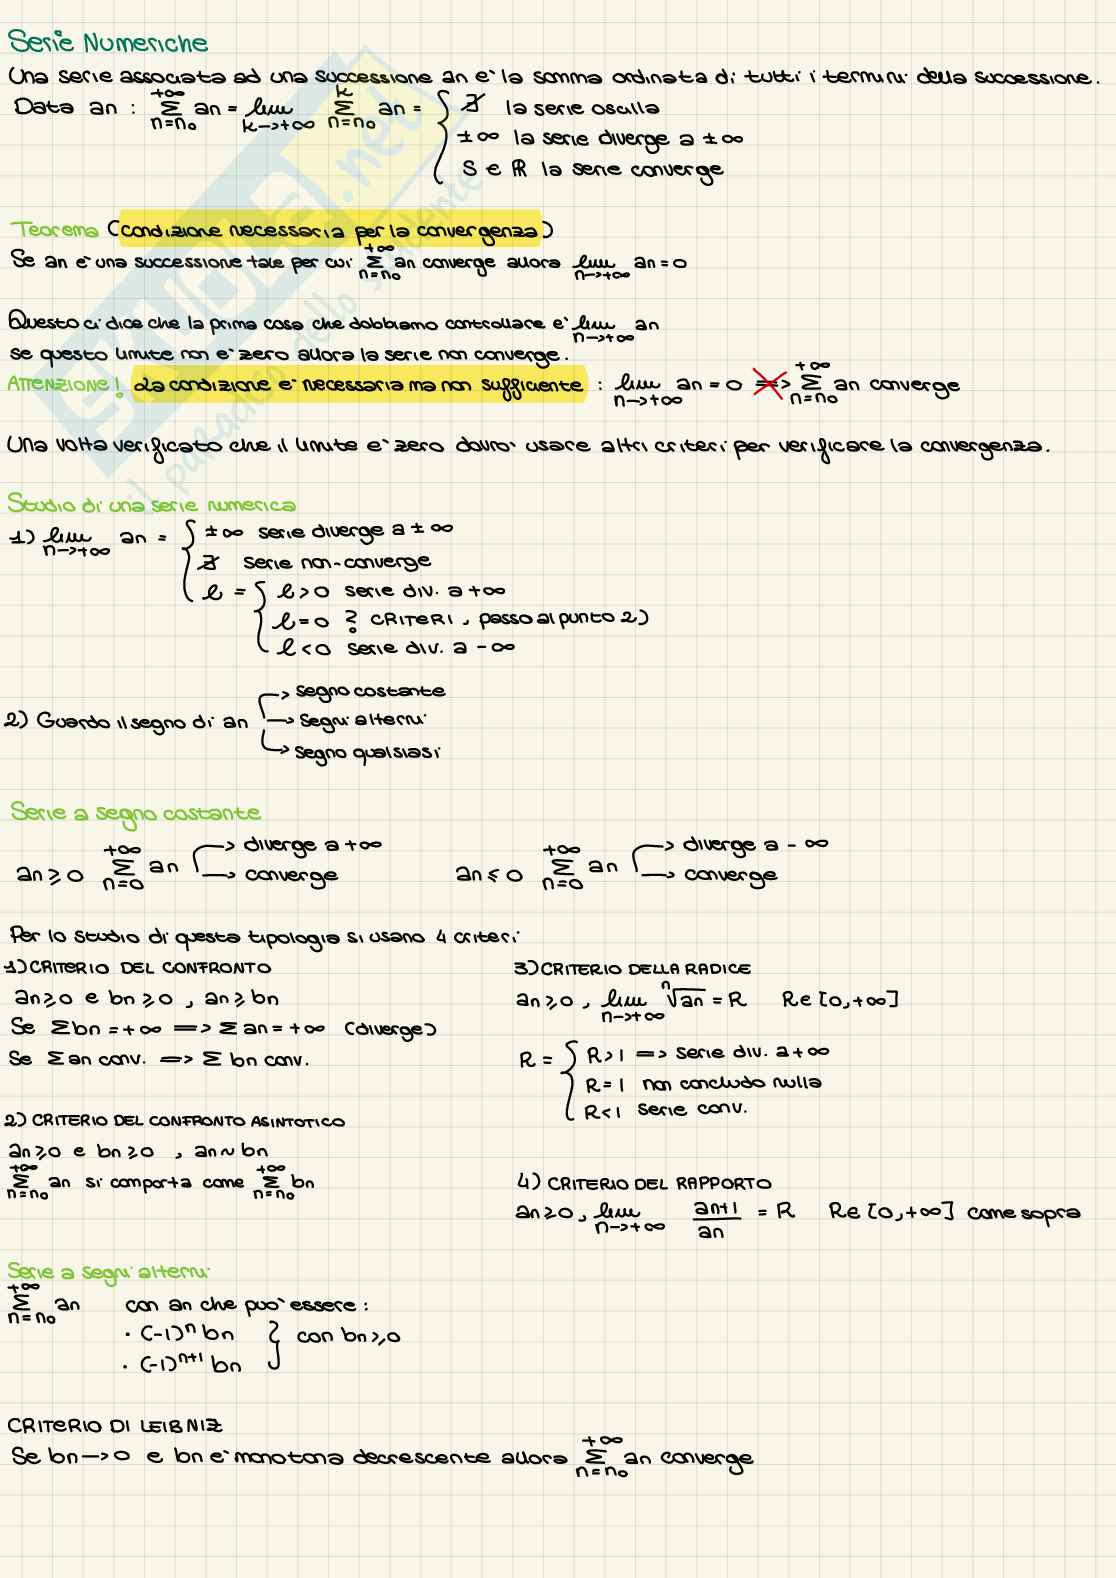 Serie Numeriche
Una serie associata ad una successione an e' la somma ordinata di tutti i termini della successione.
Data an : +∞ Σ n=n₀ an = lim k→+∞ k Σ n=n₀ an = { ∄ la serie oscilla
±∞ la serie diverge a ±∞
S ∈ ℝ la serie converge
Teorema (condizione necessaria per la convergenza)
Se an e' una successione tale per cui +∞ Σ n=n₀ an converge allora lim n→+∞ an = 0
Questo ci dice che la prima cosa che dobbiamo controllare e' lim n→+∞ an
se questo limite non e' zero allora la serie non converge.
ATTENZIONE! La condizione e' necessaria ma non sufficiente : lim n→+∞ an = 0 ⇏ +∞ Σ n=n₀ an converge
Una volta verificato che il limite e' zero dovro' usare altri criteri per verificare la convergenza.
Studio di una serie numerica
1) lim n→+∞ an = { ±∞ serie diverge a ±∞
∄ serie non-converge
l = { l>0 serie div. a +∞
l=0 ? CRITERI, passo al punto 2)
l<0 serie div. a -∞
2) Guardo il segno di an → segno costante
→ segni alterni
→ segno qualsiasi
Serie a segno costante
an ≥ 0 +∞ Σ n=0 an → diverge a +∞
→ converge
an ≤ 0 +∞ Σ n=0 an → diverge a -∞
→ converge
Per lo studio di questa tipologia si usano 4 criteri
1) CRITERIO DEL CONFRONTO
an ≥ 0 e bn ≥ 0 , an ≥ bn
Se Σ bn = +∞ ⇒ Σ an = +∞ (diverge)
Se Σ an conv. ⇒ Σ bn conv.
2) CRITERIO DEL CONFRONTO ASINTOTICO
an ≥ 0 e bn ≥ 0 , an ~ bn
+∞ Σ n=n₀ an si comporta come +∞ Σ n=n₀ bn
3) CRITERIO DELLA RADICE
an ≥ 0 , lim n→+∞ ⁿ√an = R R∈[0,+∞]
R = { R>1 ⇒ serie div. a +∞
R=1 non concludo nulla
R<1 serie conv.
4) CRITERIO DEL RAPPORTO
an ≥ 0 , lim n→+∞ an+1 / an = R R∈[0,+∞] come sopra
Serie a segni alterni
+∞ Σ n=n₀ an con an che puo' essere :
• (-1)ⁿ bn } con bn ≥ 0
• (-1)ⁿ⁺¹ bn
CRITERIO DI LEIBNIZ
Se bn → 0 e bn e' monotona decrescente allora +∞ Σ n=n₀ an converge
SKUOLA.net
il paradiso dello studente